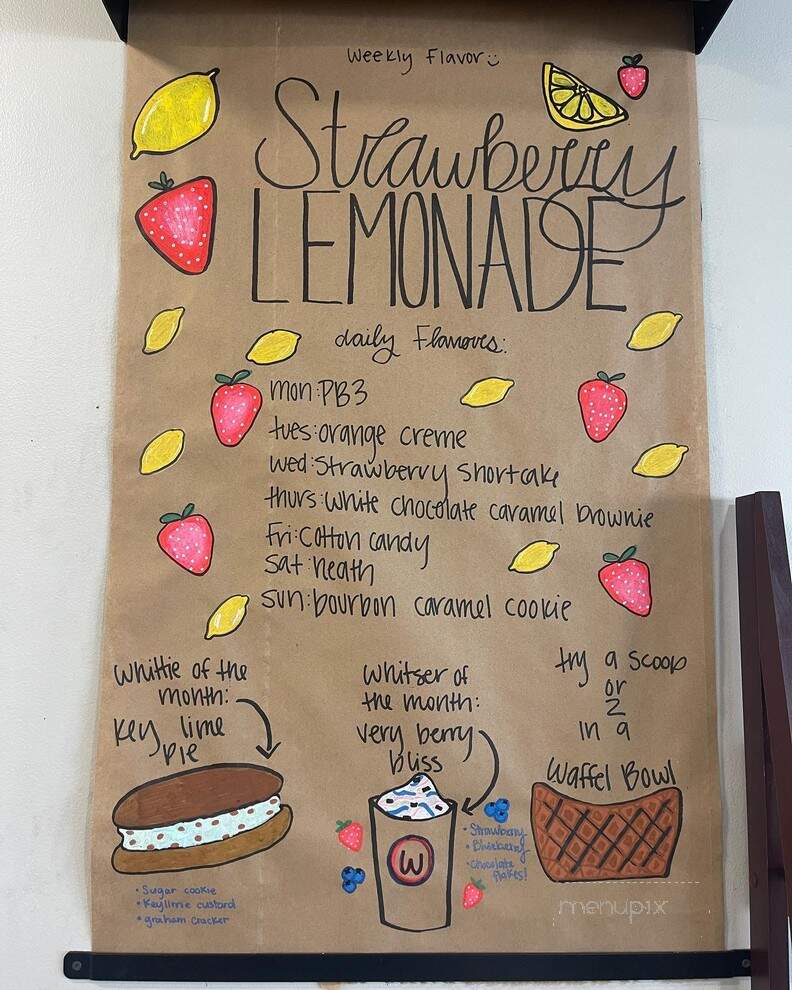 Weekly Flavor:
Strawberry
LEMONADE
daily Flavors:
mon:PB3
tues:orange creme
wed:Strawberry Shortcake
thurs:White chocolate caramel brownie
Fri:Cotton candy
Sat:heath
sun:bourbon caramel cookie
Whittie of the
month:
Key lime
pie
• Sugar cookie
• Keylime custard
• graham cracker
Whitser of
the month:
very berry
bliss
W
• Strawberry
• Blueberry
• Chocolate
flakes!
try a scoop
or
2
in a
Waffel Bowl
menupix